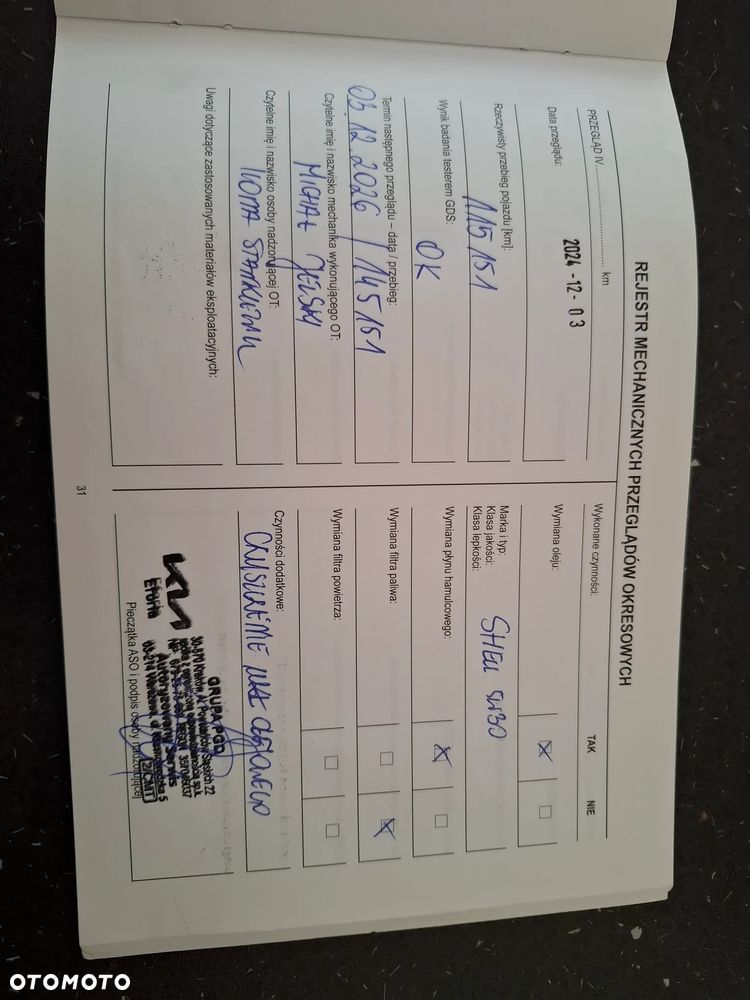 REJESTR MECHANICZNYCH PRZEGLĄDÓW OKRESOWYCH
PRZEGLĄD IV.............................. km
Data przeglądu:
2024-12-03
Rzeczywisty przebieg pojazdu [km]:
115 151
Wynik badania testerem GDS:
OK
Termin następnego przeglądu – data / przebieg:
03.12.2026 / 145151
Czytelne imię i nazwisko mechanika wykonującego OT:
MICHAŁ
Czytelne imię i nazwisko osoby nadzorującej OT:
Uwagi dotyczące zastosowanych materiałów eksploatacyjnych:
Wykonane czynności:
TAK
NIE
Wymiana oleju:
Marka i typ:
Klasa jakości:
Klasa lepkości:
SHELL 5W30
Wymiana płynu hamulcowego:
Wymiana filtra paliwa:
Wymiana filtra powietrza:
Czynności dodatkowe:
GRUPA PGD
Autoryzowany Serwis
Pieczątka ASO i podpis osoby nadzorującej
31
OTOMOTO